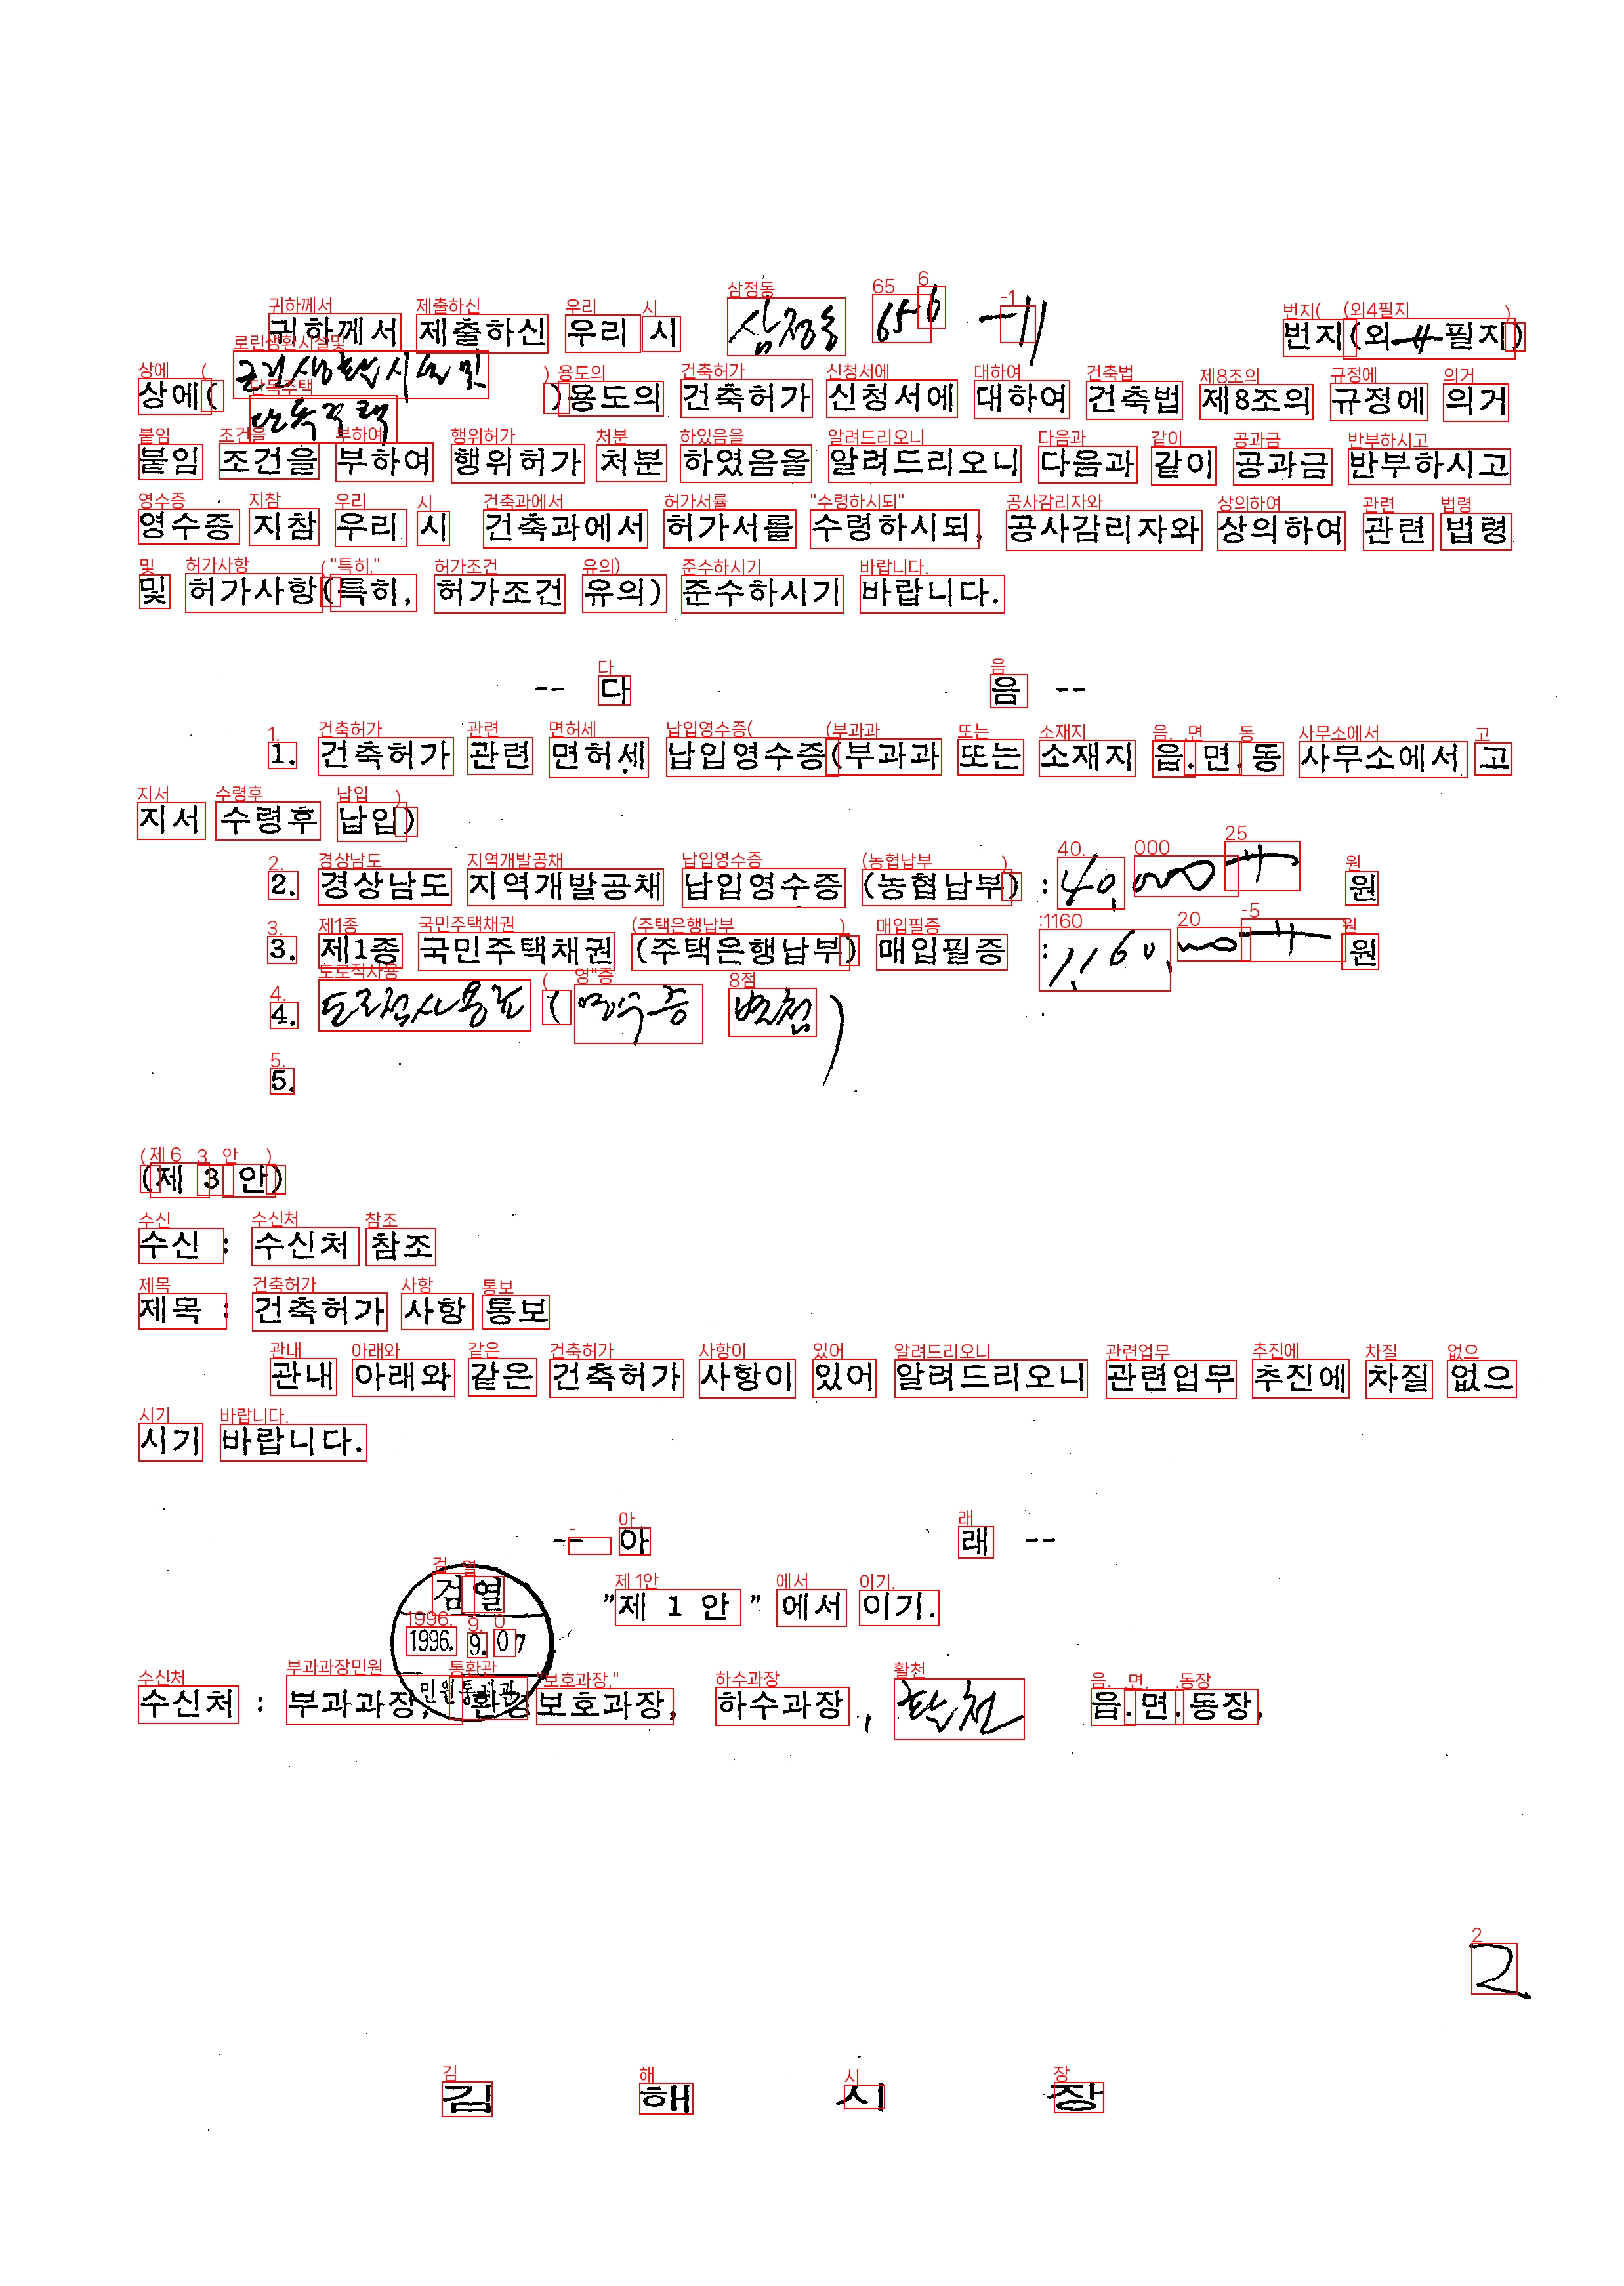 귀하께서 제출하신 우리 시 삼정동 656 -11 번지(외 필지)
상에(근린생활시설 및 단독주택)용도의 건축허가 신청서에 대하여 건축법 제8조의 규정에 의거
붙임 조건을 부하여 행위허가 처분 하였음을 알려드리오니 다음과 같이 공과금 반부하시고
영수증 지참 우리 시 건축과에서 허가서를 수령하시되, 공사감리자와 상의하여 관련 법령
및 허가사항(특히, 허가조건 유의) 준수하시기 바랍니다.
-- 다 음 --
1. 건축허가 관련 면허세 납입영수증(부과과 또는 소재지 읍.면.동 사무소에서 고
지서 수령후 납입)
2. 경상남도 지역개발공채 납입영수증 (농협납부) : 40,000 원
3. 제1종 국민주택채권 (주택은행납부) 매입필증 : 1,160,000 원
4. 도로점사용료 (영수증 별첨)
5.
(제 3 안)
수신 : 수신처 참조
제목 : 건축허가 사항 통보
관내 아래와 같은 건축허가 사항이 있어 알려드리오니 관련업무 추진에 차질 없으
시기 바랍니다.
-- 아 래 --
"제 1 안 " 에서 이기.
검열
1996. 9. 07
민원통제관
수신처 : 부과과장, 환경보호과장, 하수과장, 활천 읍.면.동장,
2
김 해 시 장